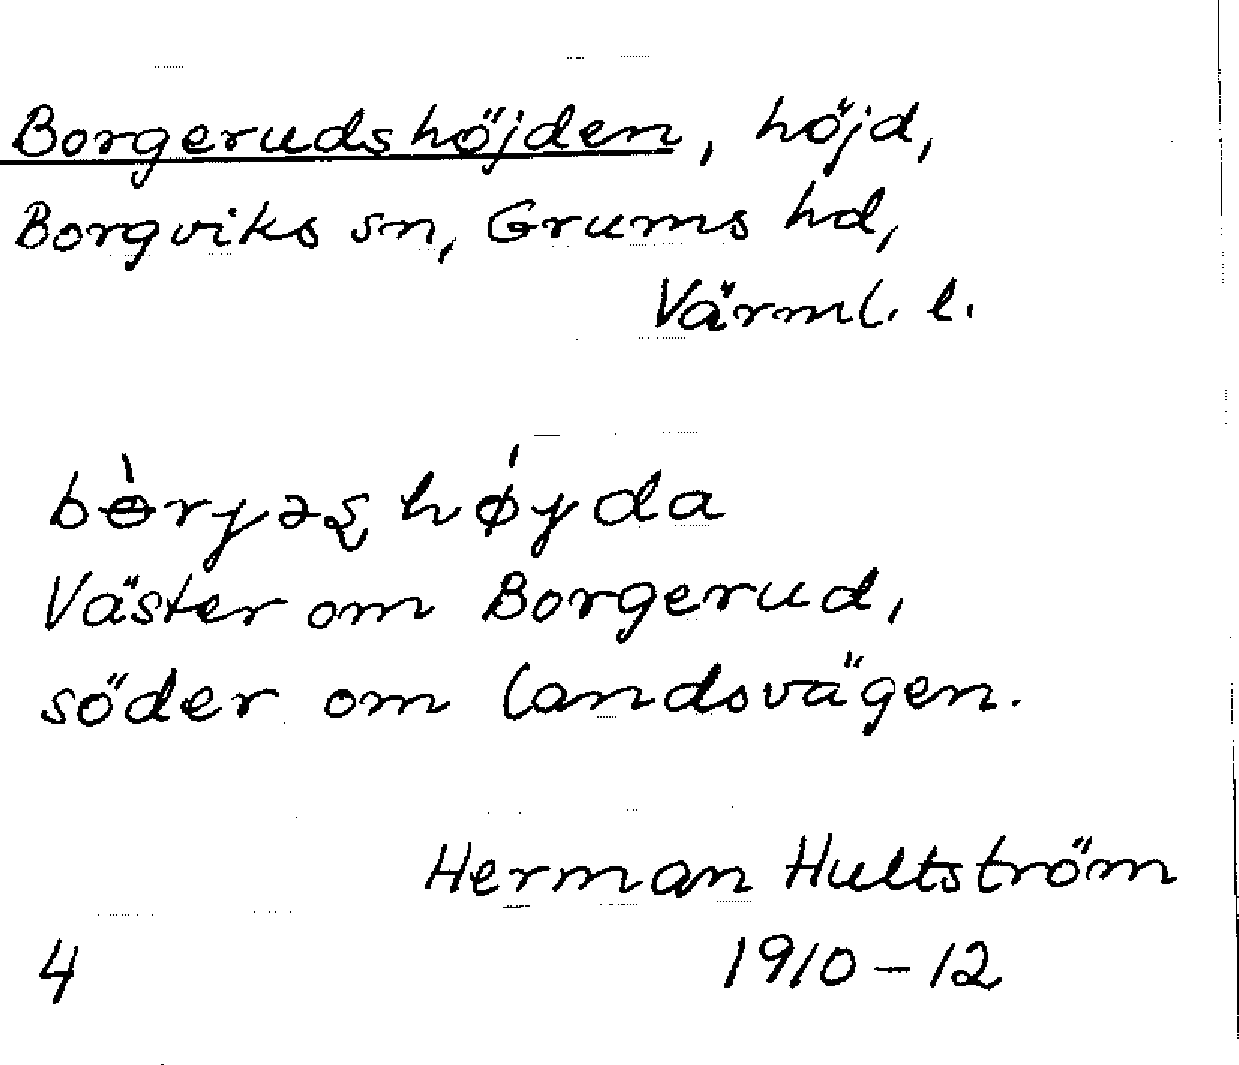 Borgerudshöjden, höjd,
Borgviks sn, Grums hd,
Värml. l.
bɵ̀rjəʂhǿjda
Väster om Borgerud,
söder om landsvägen.
Herman Hultström
4 1910-12